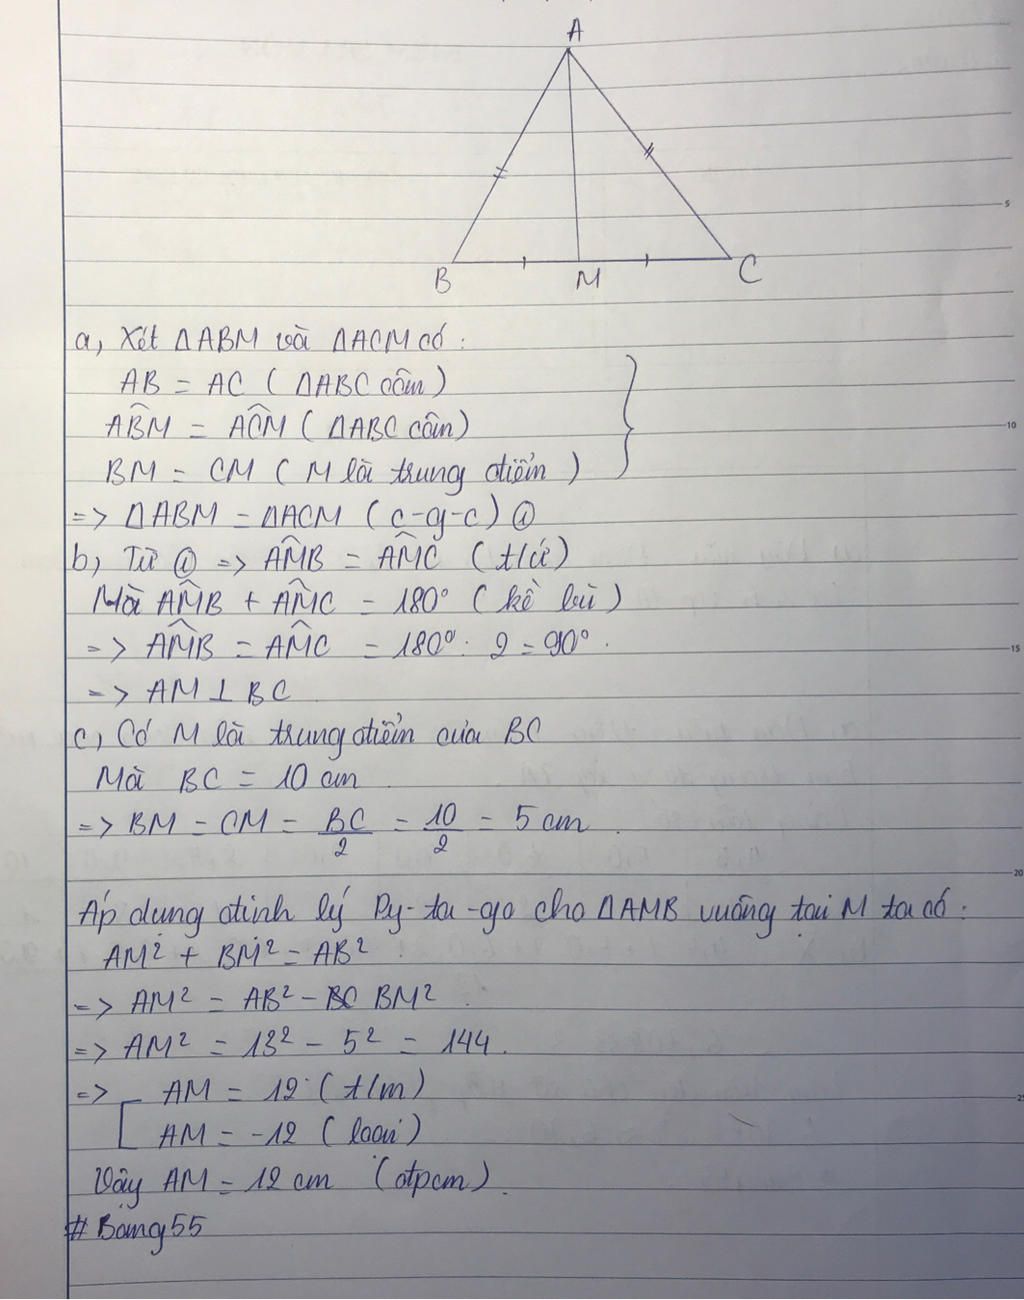 A
B
M
C
5
a, Xét ΔABM và ΔACM có :
AB = AC ( ΔABC cân )
10
ABM̂ = ACM̂ ( ΔABC cân )
BM = CM ( M là trung điểm )
=> ΔABM = ΔACM ( c-g-c ) ①
b, Từ ① => AMB̂ = AMĈ ( t/ứ )
Mà AMB̂ + AMĈ = 180° ( kề bù )
=> AMB̂ = AMĈ = 180° : 2 = 90° .
15
=> AM ⊥ BC
c, Có M là trung điểm của BC
Mà BC = 10 cm
=> BM = CM = BC/2 = 10/2 = 5 cm .
20
Áp dụng định lý Py-ta-go cho ΔAMB vuông tại M ta có :
AM² + BM² = AB²
=> AM² = AB² - BC BM² .
=> AM² = 13² - 5² = 144 .
=> [ AM = 12 ( t/m )
25
AM = -12 ( loại )
Vậy AM = 12 cm ( đpcm ) .
# Bang55